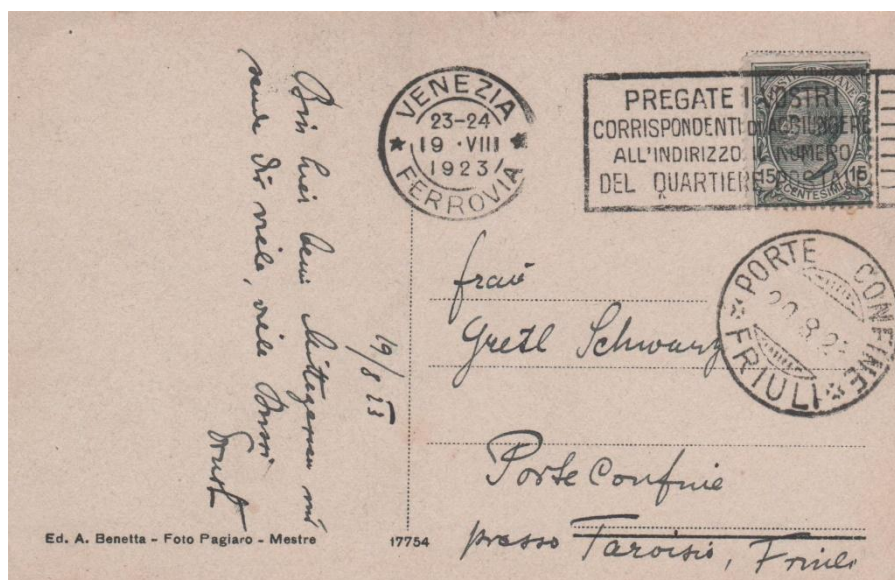 VENEZIA
23-24
19 · VIII
1923
FERROVIA
PREGATE I VOSTRI
CORRISPONDENTI DI AGGIUNGERE
ALL'INDIRIZZO IL NUMERO
DEL QUARTIERE POSTALE
POSTE ITALIANE
15 15
CENTESIMI
PORTE CONFINE
20.8.23
FRIULI
19/8 23
Bin hier beim Mittagessen und
sende Dir viele, viele Bussi
Ernst
Frau
Gretl Schwarz
Porte Confine
presso Tarvisio, Friuli
Ed. A. Benetta - Foto Pagiaro - Mestre
17754